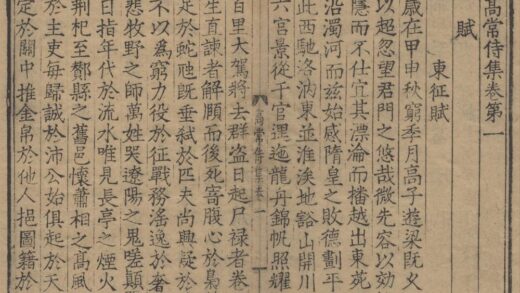 高常侍集卷第一
賦
東征賦
歲在甲申秋窮季月高子遊梁既乂
以超忽望君門之悠哉微先容以効
隱而不仕宜其漂淪而播越出東苑
沿濁河而茲始感隋皇之敗德劃平
此西馳洛汭東並淮涘地豁山開川
六宮景從千官邐迤龍舟錦帆照耀
高常侍集卷一
百里大駕將去群盜日起尸禄者卷
生直諫者解頤而後死寄腹心於梟
足於蛇虺既垂弑於匹夫尚興疑於
不以為窮力役於征戰務滛逸於奢
悲牧野之師萬姓哭遼陽之鬼嗟顛
日指年代於流水唯見長亭之煙火
荊杞至酇縣之舊邑懷蕭相之高風
於主吏每歸誠於沛公始俱起於天
定於關中推金帛於他人挹圖籍於